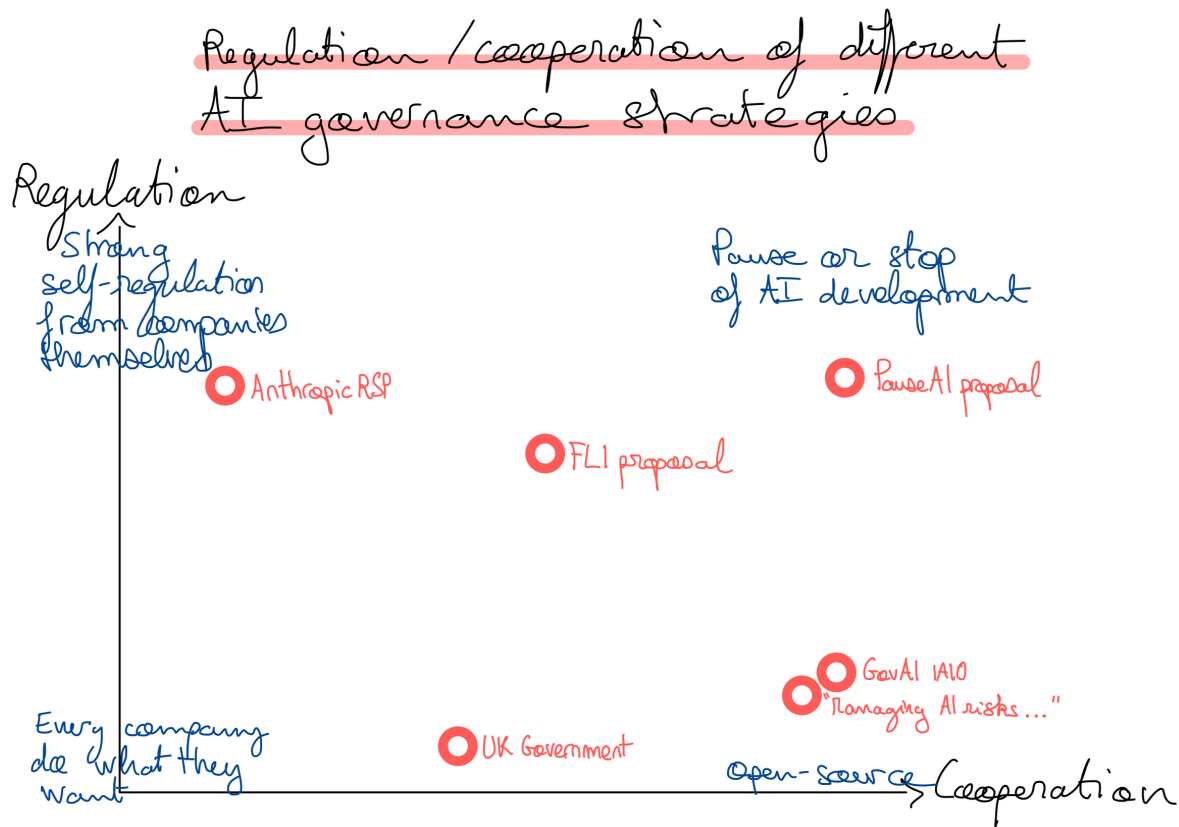 Regulation / cooperation of different
AI governance strategies
Regulation
Strong
self-regulation
from companies
themselves
Pause or stop
of AI development
Anthropic RSP
PauseAI proposal
FLI proposal
GovAI IAIO
"Managing AI risks..."
Every company
do what they
want
UK Government
open-source
Cooperation